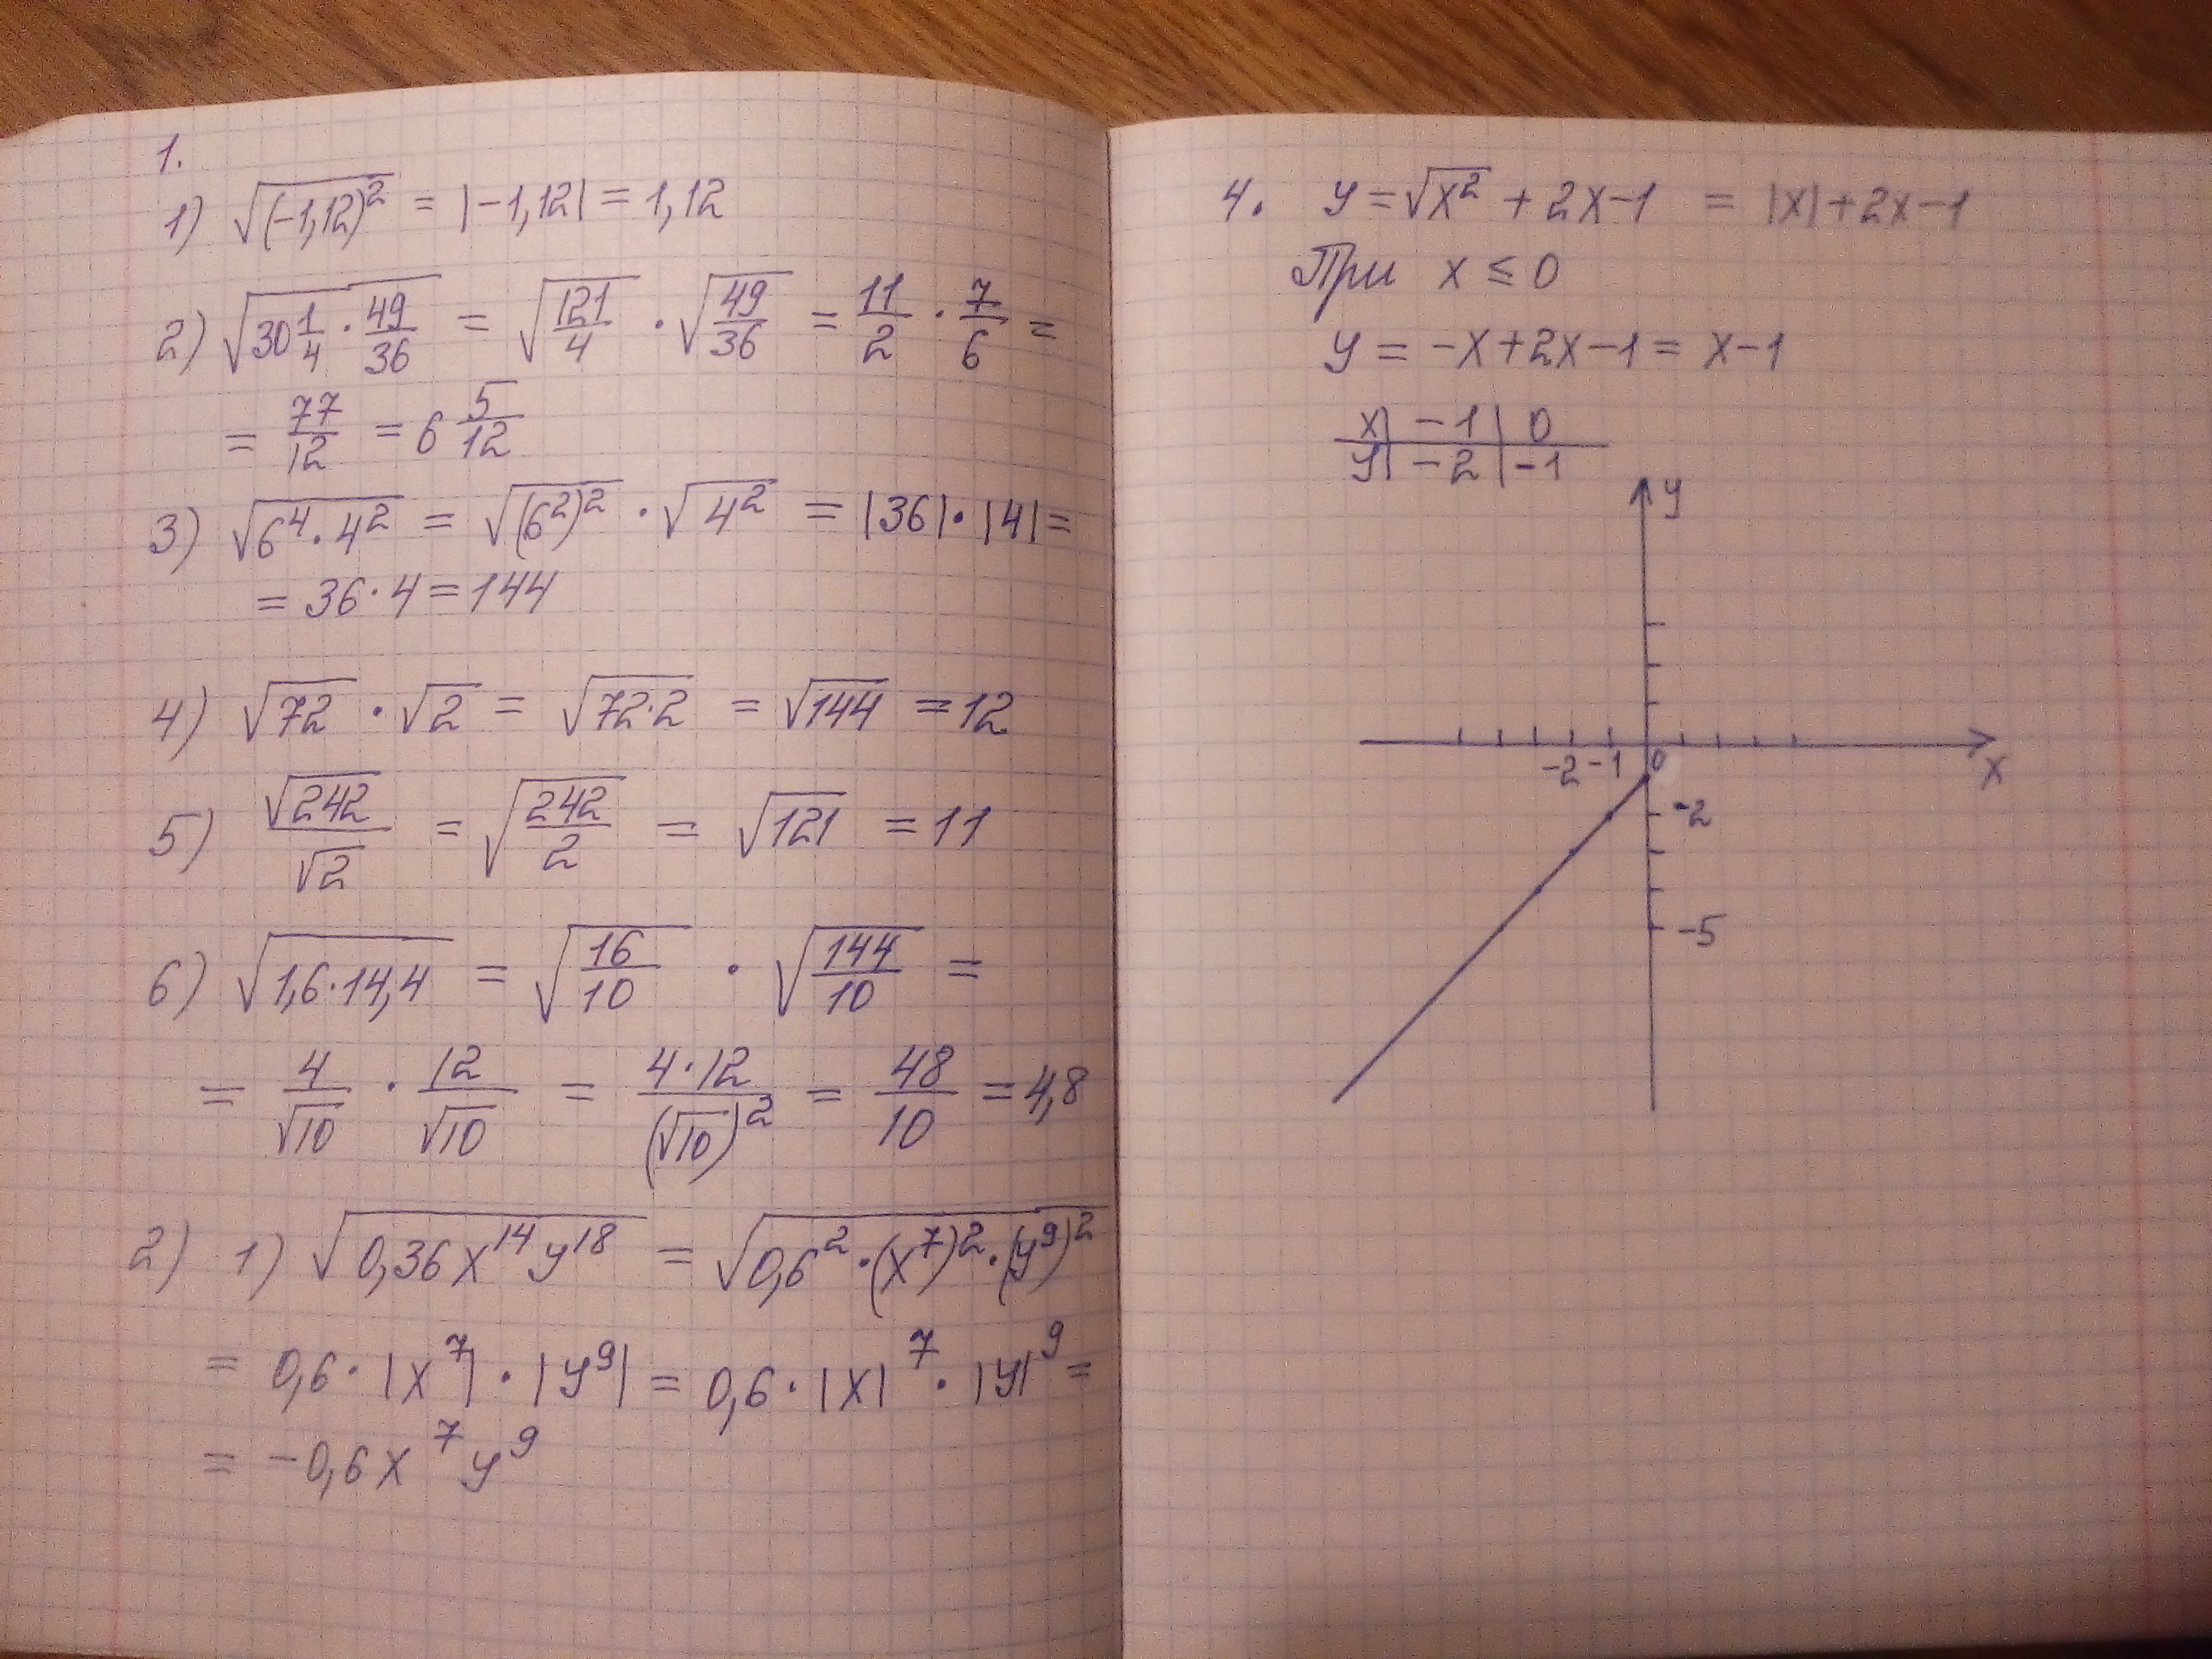 1.
1) √(-1,12)² = |-1,12| = 1,12
2) √(30 1/4 · 49/36) = √(121/4) · √(49/36) = 11/2 · 7/6 =
= 77/12 = 6 5/12
3) √(6⁴ · 4²) = √((6²)²) · √(4²) = |36| · |4| =
= 36 · 4 = 144
4) √72 · √2 = √(72·2) = √144 = 12
5) √242/√2 = √(242/2) = √121 = 11
6) √(1,6·14,4) = √(16/10) · √(144/10) =
= 4/√10 · 12/√10 = 4·12/(√10)² = 48/10 = 4,8
2) 1) √(0,36x¹⁴y¹⁸) = √(0,6² · (x⁷)² · (y⁹)²)
= 0,6 · |x⁷| · |y⁹| = 0,6 · |x|⁷ · |y|⁹ =
= -0,6x⁷y⁹
4. y = √x² + 2x-1 = |x|+2x-1
При x ≤ 0
y = -x+2x-1 = x-1
x | -1 | 0
y | -2 | -1
y
-2 -1 0
x
-2
-5